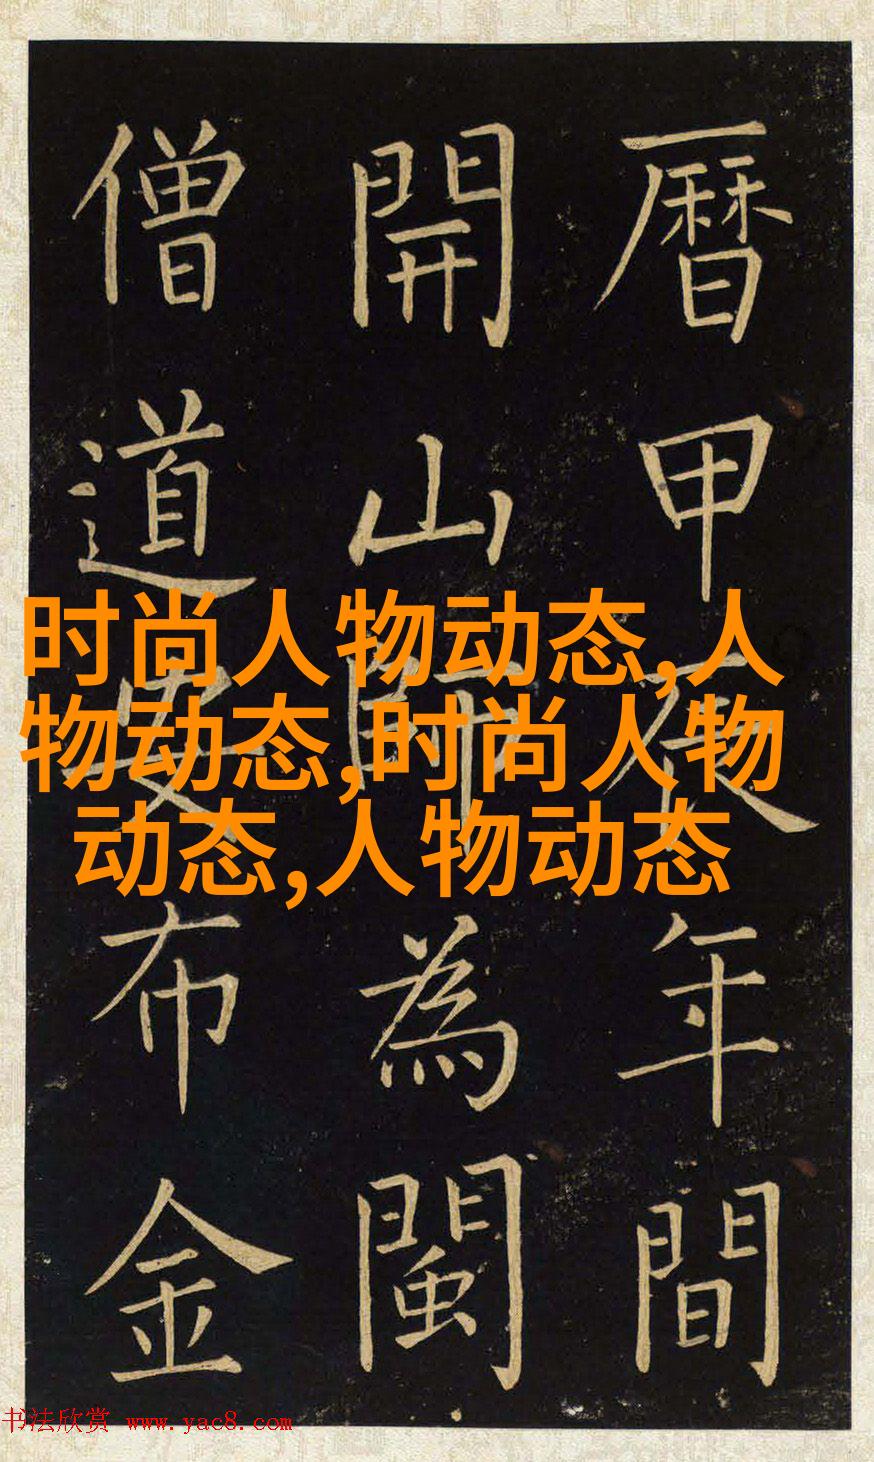 曆甲年間
開山為閩
僧道布金
时尚人物动态,人
物动态,时尚人物
动态,人物动态
书法欣赏 www.yac8.com